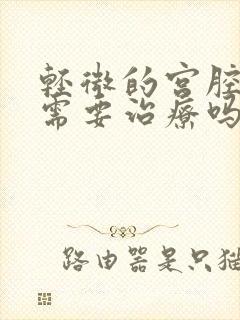 轻微的宫腔
需要治疗吗
路由器是只猫